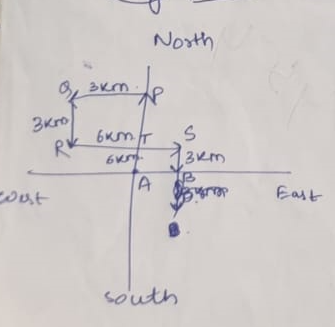 North
Q 3km P
3km
6km T S
R
6km 3km
A B
East
south